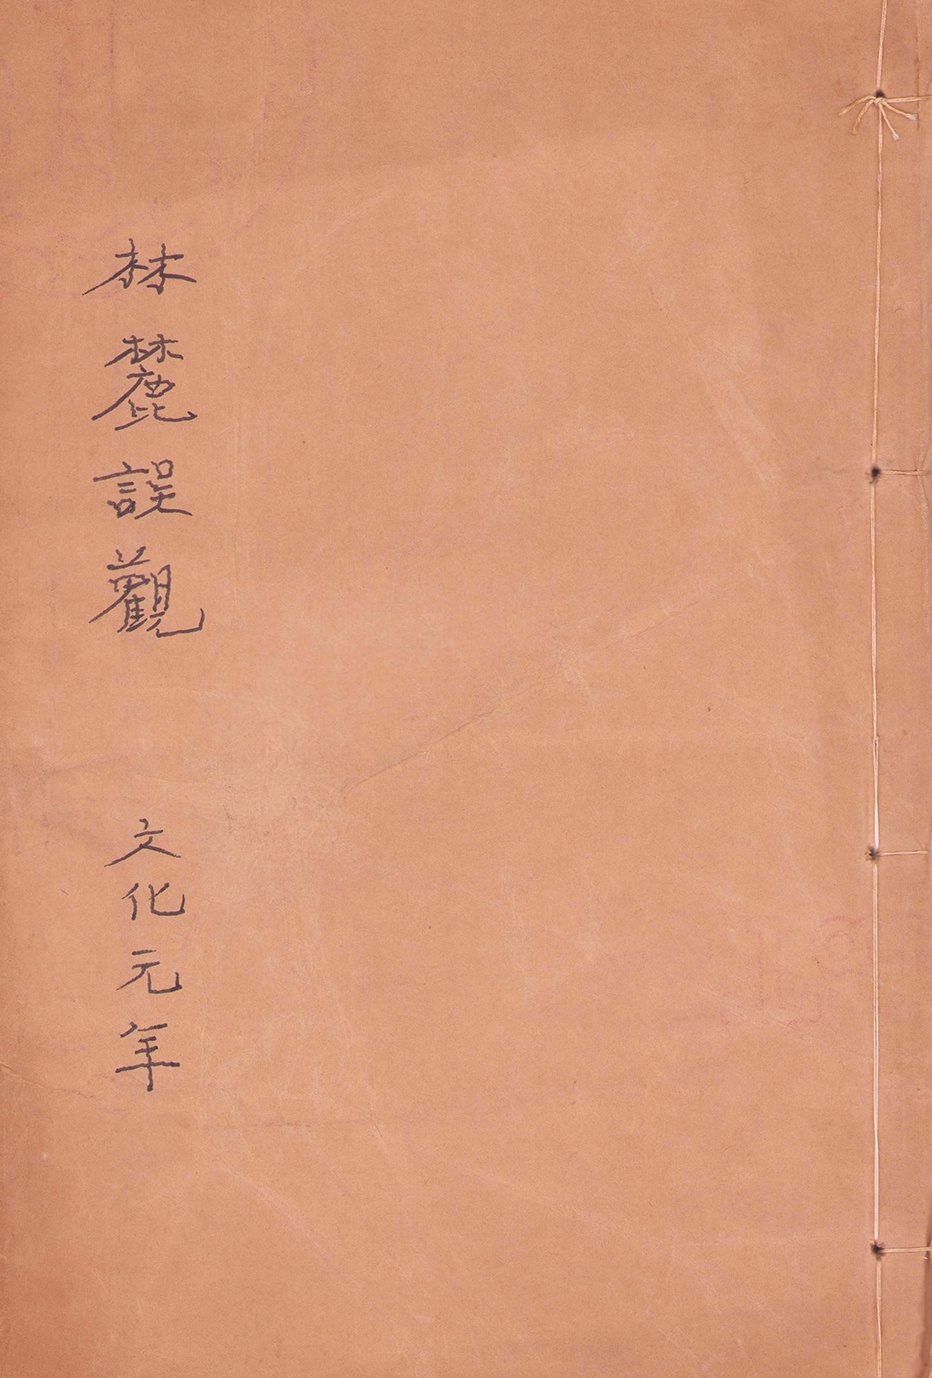 林麓誤觀
文化元年